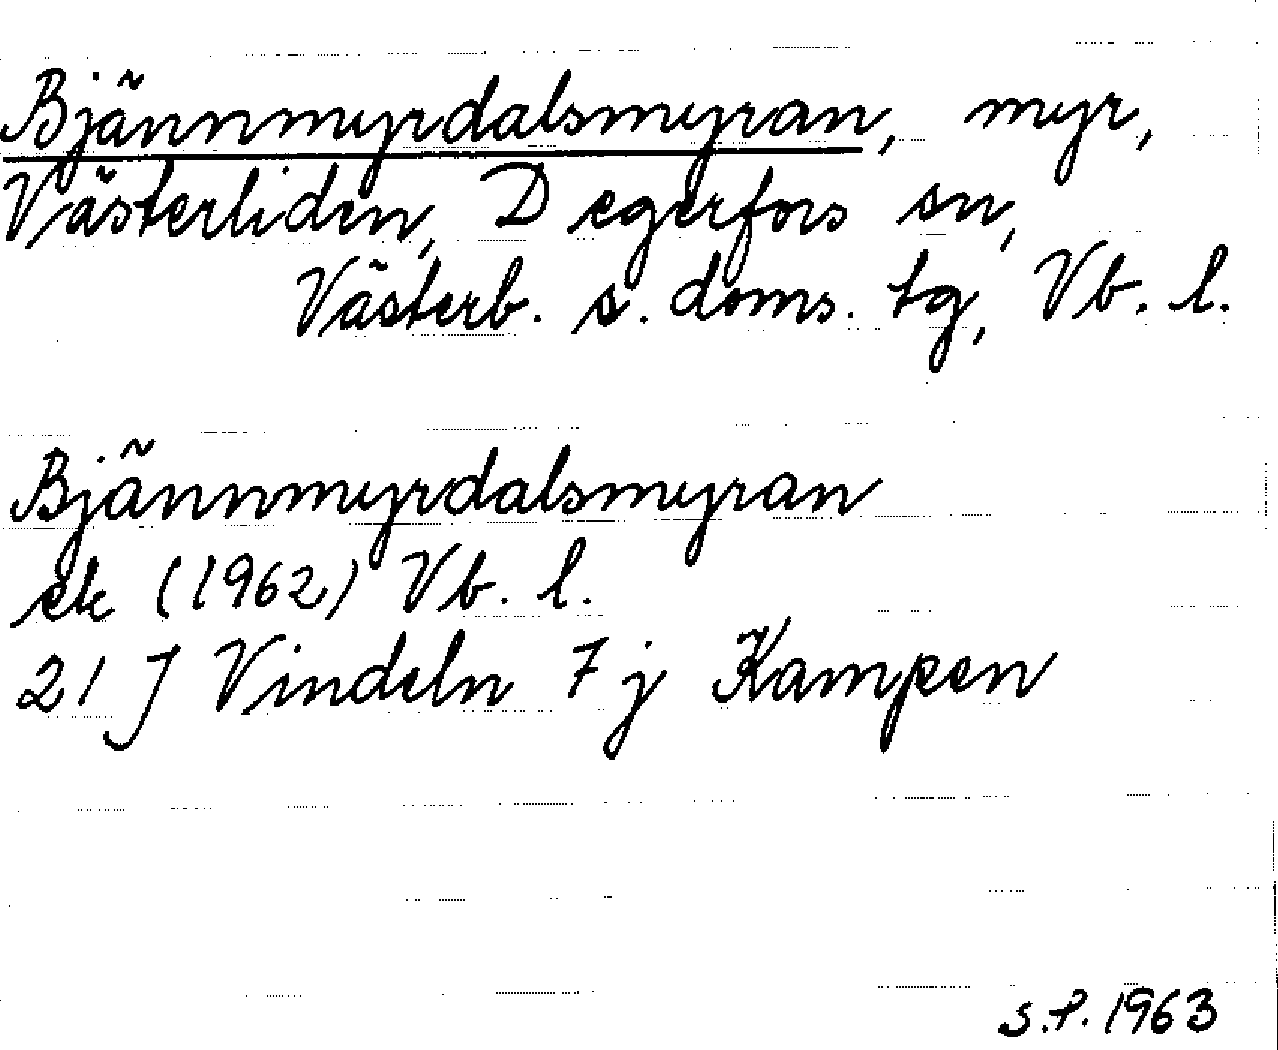 Bjännmyrdalsmyran, myr,
Västerliden, Degerfors sn,
Västerb. s. doms. tg, Vb. l.
Bjännmyrdalsmyran
ek (1962) Vb. l.
21 J Vindeln 7 j Kampen
S.P. 1963